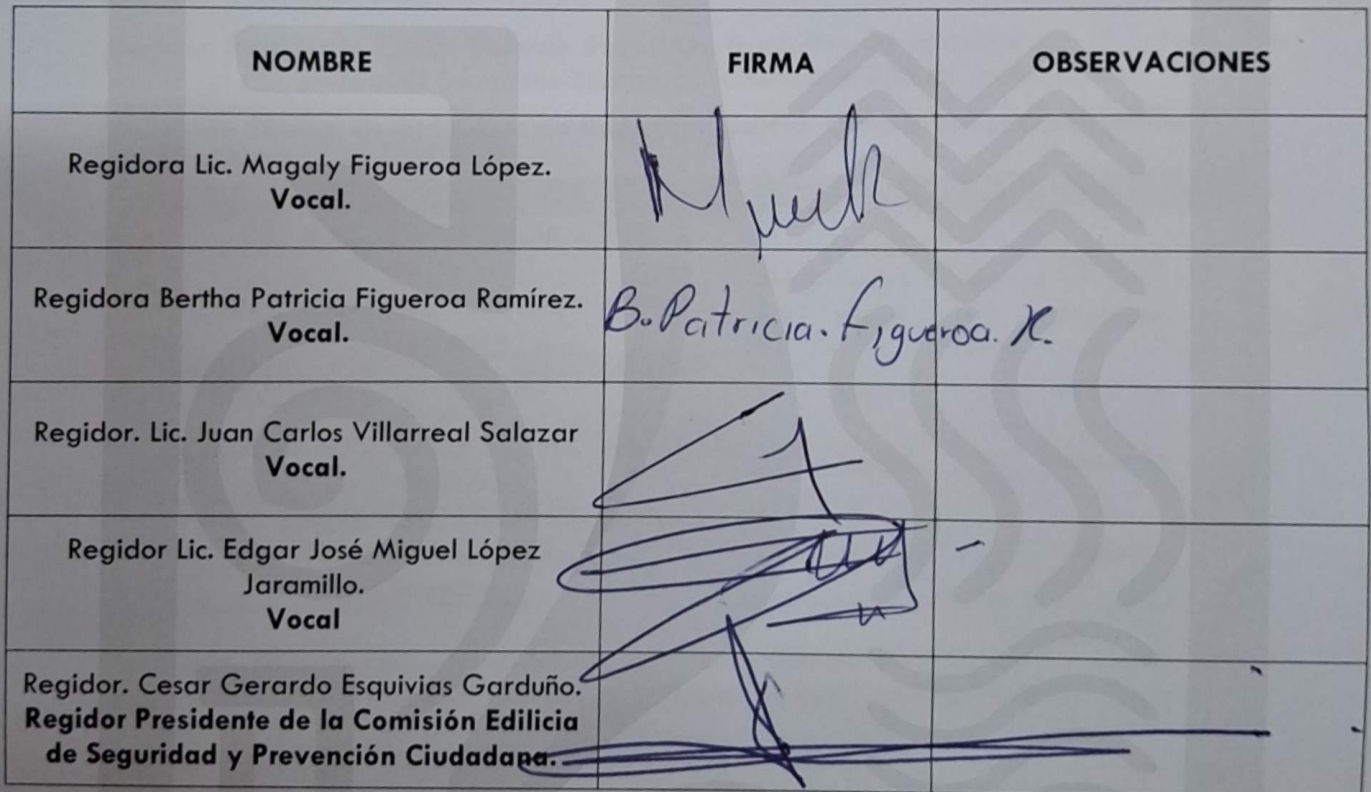 NOMBRE FIRMA OBSERVACIONES
Regidora Lic. Magaly Figueroa López.
Vocal.
Regidora Bertha Patricia Figueroa Ramírez.
Vocal.
B. Patricia. Figueroa. R.
Regidor. Lic. Juan Carlos Villarreal Salazar
Vocal.
Regidor Lic. Edgar José Miguel López
Jaramillo.
Vocal
Regidor. Cesar Gerardo Esquivias Garduño.
Regidor Presidente de la Comisión Edilicia
de Seguridad y Prevención Ciudadana.